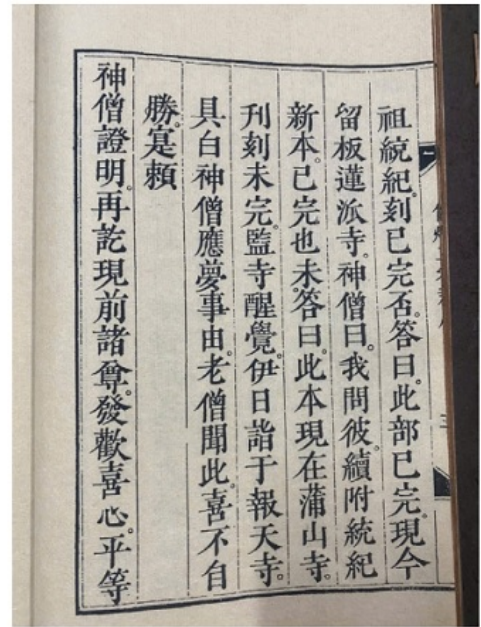 祖統紀。刻已完否。答曰。此部已完。現今
留板蓮派寺。神僧曰。我問彼。續附統紀
新本。已完也未。答曰。此本現在蒲山寺。
刊刻未完。監寺醒覺。伊日詣于報天寺。
具白神僧應夢事由。老僧聞此。喜不自
勝。寔賴
神僧證明。再訖現前諸尊。發歡喜心。平等